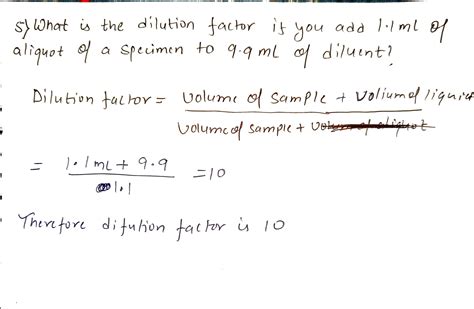 5) What is the dilution factor if you add 1.1 mL of
aliquot of a specimen to 9.9 mL of diluent?
Dilution factor = volume of sample + volium of liquid
volume of sample +
= 1.1mL + 9.9 = 10
1.1
Therefore difution factor is 10